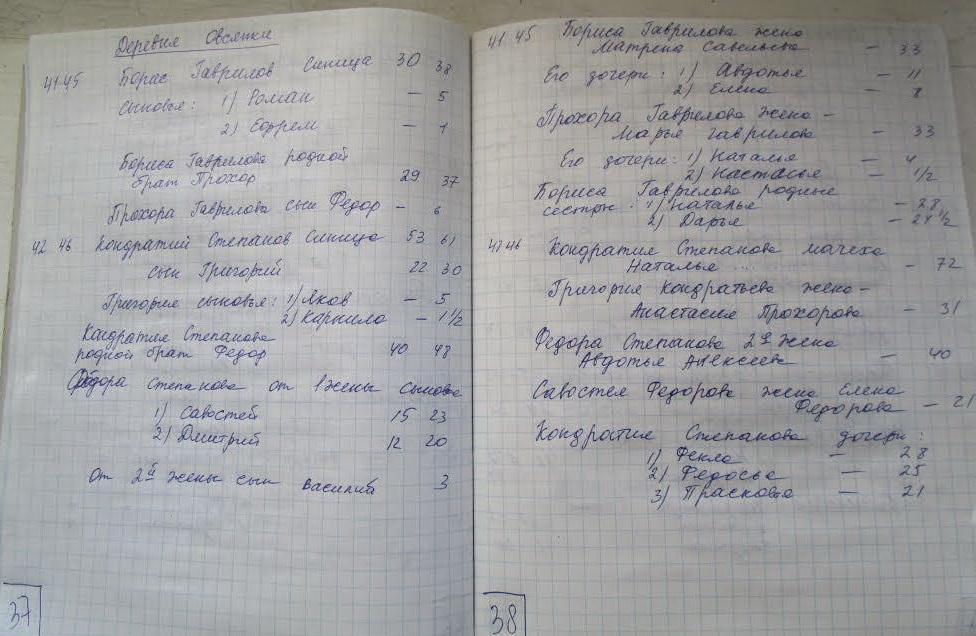 Деревня Овсятки
41 45 Борис Гаврилов Синица 30 38
сыновья: 1) Роман — 5
2) Ефрем — 1
Бориса Гаврилова родной
брат Прохор 29 37
Прохора Гаврилова сын Федор — 6
42 46 Кондратий Степанов Синица 53 61
сын Григорий 22 30
Григория сыновья: 1) Яков — 5
2) Карнило — 1 1/2
Кондратия Степанова
родной брат Федор 40 48
Федора Степанова от 1 жены сыновья
1) Савостей 15 23
2) Дмитрий 12 20
от 2й жены сын Василий 3
37
41 45 Бориса Гаврилова жена
Матрена Савельева — 33
Его дочери: 1) Авдотья — 11
2) Елена — 8
Прохора Гаврилова жена —
Марья Гаврилова — 33
Его дочери: 1) Наталья — 4
2) Настасья — 1/2
Бориса Гаврилова родные
сестры: 1) Наталья — 28
2) Дарья — 24 1/2
42 46 Кондратия Степанова мачеха
Наталья .... — 72
Григория Кондратьева жена —
Анастасия Прохорова — 31
Федора Степанова 2я жена
Авдотья Алексеева — 40
Савостея Федорова жена Елена
Федорова — 21
Кондратия Степанова дочери:
1) Фекла — 28
2) Федосья — 25
3) Прасковья — 21
38